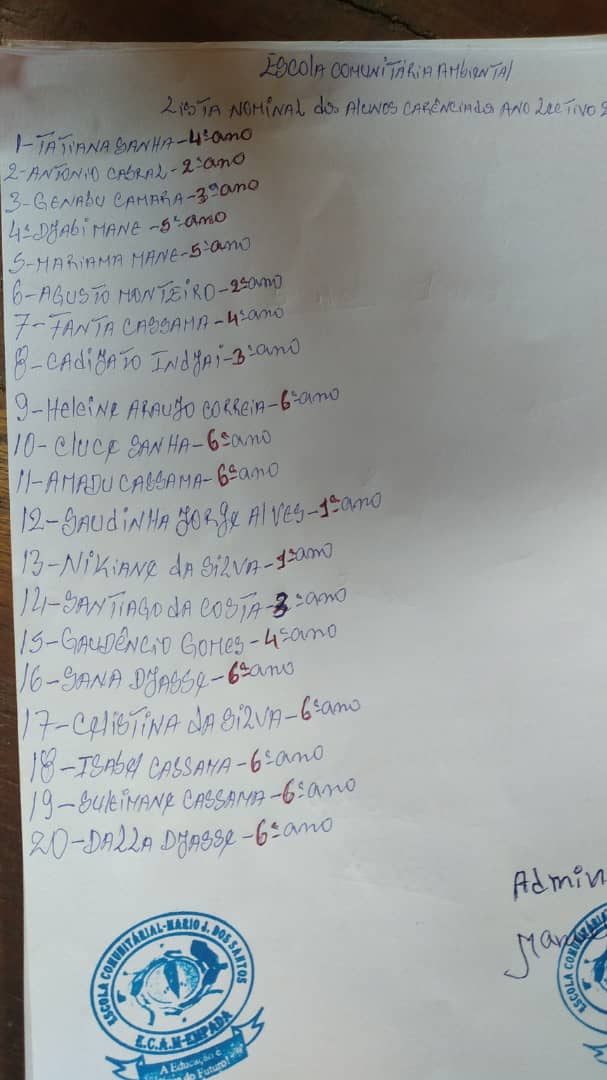 ESCOLA COMUNITÁRIA AMBIENTAL
LISTA NOMINAL dos ALUNOS CARÊNCIADOS ANO LECTIVO
1-TATIANA SANHA-4ºano
2-ANTONIO CABRAL-2ºano
3-GENABU CAMARA-3ºano
4-DJABI MANE-5ºano
5-MARIAMA MANE-5ºano
6-AGUSTO MONTEIRO-2ºano
7-FANTA CASSAMA-4ºano
8-CADIJATO INDJAI-3ºano
9-HELEINE ARAUJO CORREIA-6ºano
10-CLUCE SANHA-6ºano
11-AMADU CASSAMA-6ºano
12-SAUDINHA JORGE ALVES-1ºano
13-NIKIANE DA SILVA-1ºano
14-SANTIAGO DA COSTA-3ºano
15-GAUDÊNCIO GOMES-4ºano
16-SANA DJASSE-6ºano
17-CELISTINA DA SILVA-6ºano
18-ISABEL CASSAMA-6ºano
19-SULEIMANE CASSAMA-6ºano
20-DALLA DJASSE-6ºano
Admin
ESCOLA COMUNITÁRIAL-MARIO J. DOS SANTOS
E.C.A.M-EMPADA
A Educação e
do Futuro!
ESCOLA COMUNITÁRIAL